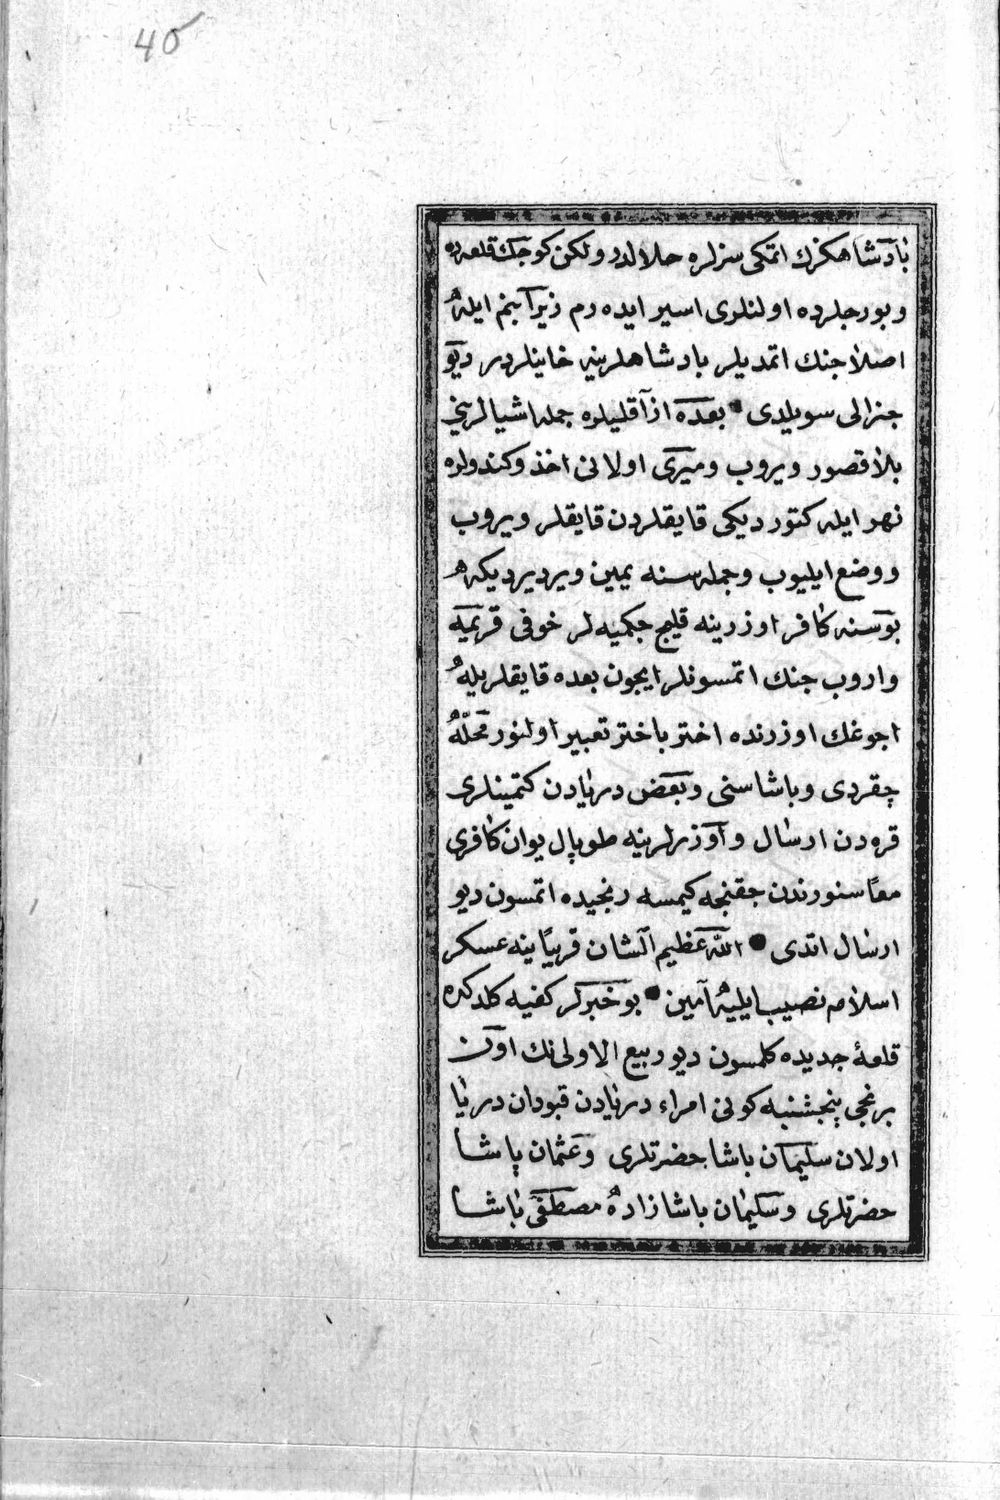 45
پادشاهكزك اتمكی سزلره حلالدر ولكن كوجك قلعه ده
وبورجلرده اولنلری اسیر ایده رم زیرا بنم ایله
اصلا جنك اتمدیلر پادشاهلرینه خاینلردر دیو
جنرالی سویلدی • بعده ازاقلیلره جمله اشیالرینی
بلا قصور ویروب ومیری اولانی اخذ وكندولره
نهر ایله كتوردیكی قایقلردن قایقلر ویروب
ووضع ایلیوب وجمله سنه یمین ویردیردیكه
بو سنه كافر اوزرینه قلیج چكمیه لر خوفی قریمه
واروب جنك اتمسونلر ایچون بعده قایقلریله
اجوغك اوزرنده اختر باختر تعبیر اولنور محله
چقردی وپاشاسنی وبعض دریادن كتمینلری
قره دن ارسال واوزرلرینه طوپال یوان كافری
معا سنورندن چقنجه كیمسه رنجیده اتمسون دیو
ارسال اتدی • الله عظیم الشان قریبا ینه عسكر
اسلامه نصیب ایلیه آمین • بو خبرلر كفیه كلدكده
قلعهٔ جدیده كلمسون دیو ربیع الاولی نك اون
برنجی پنجشنبه كونی امراء دریادن قپودان دریا
اولان سلیمان پاشا حضرتلری وعثمان پاشا
حضرتلری وسلیمان پاشا زاده مصطفی پاشا